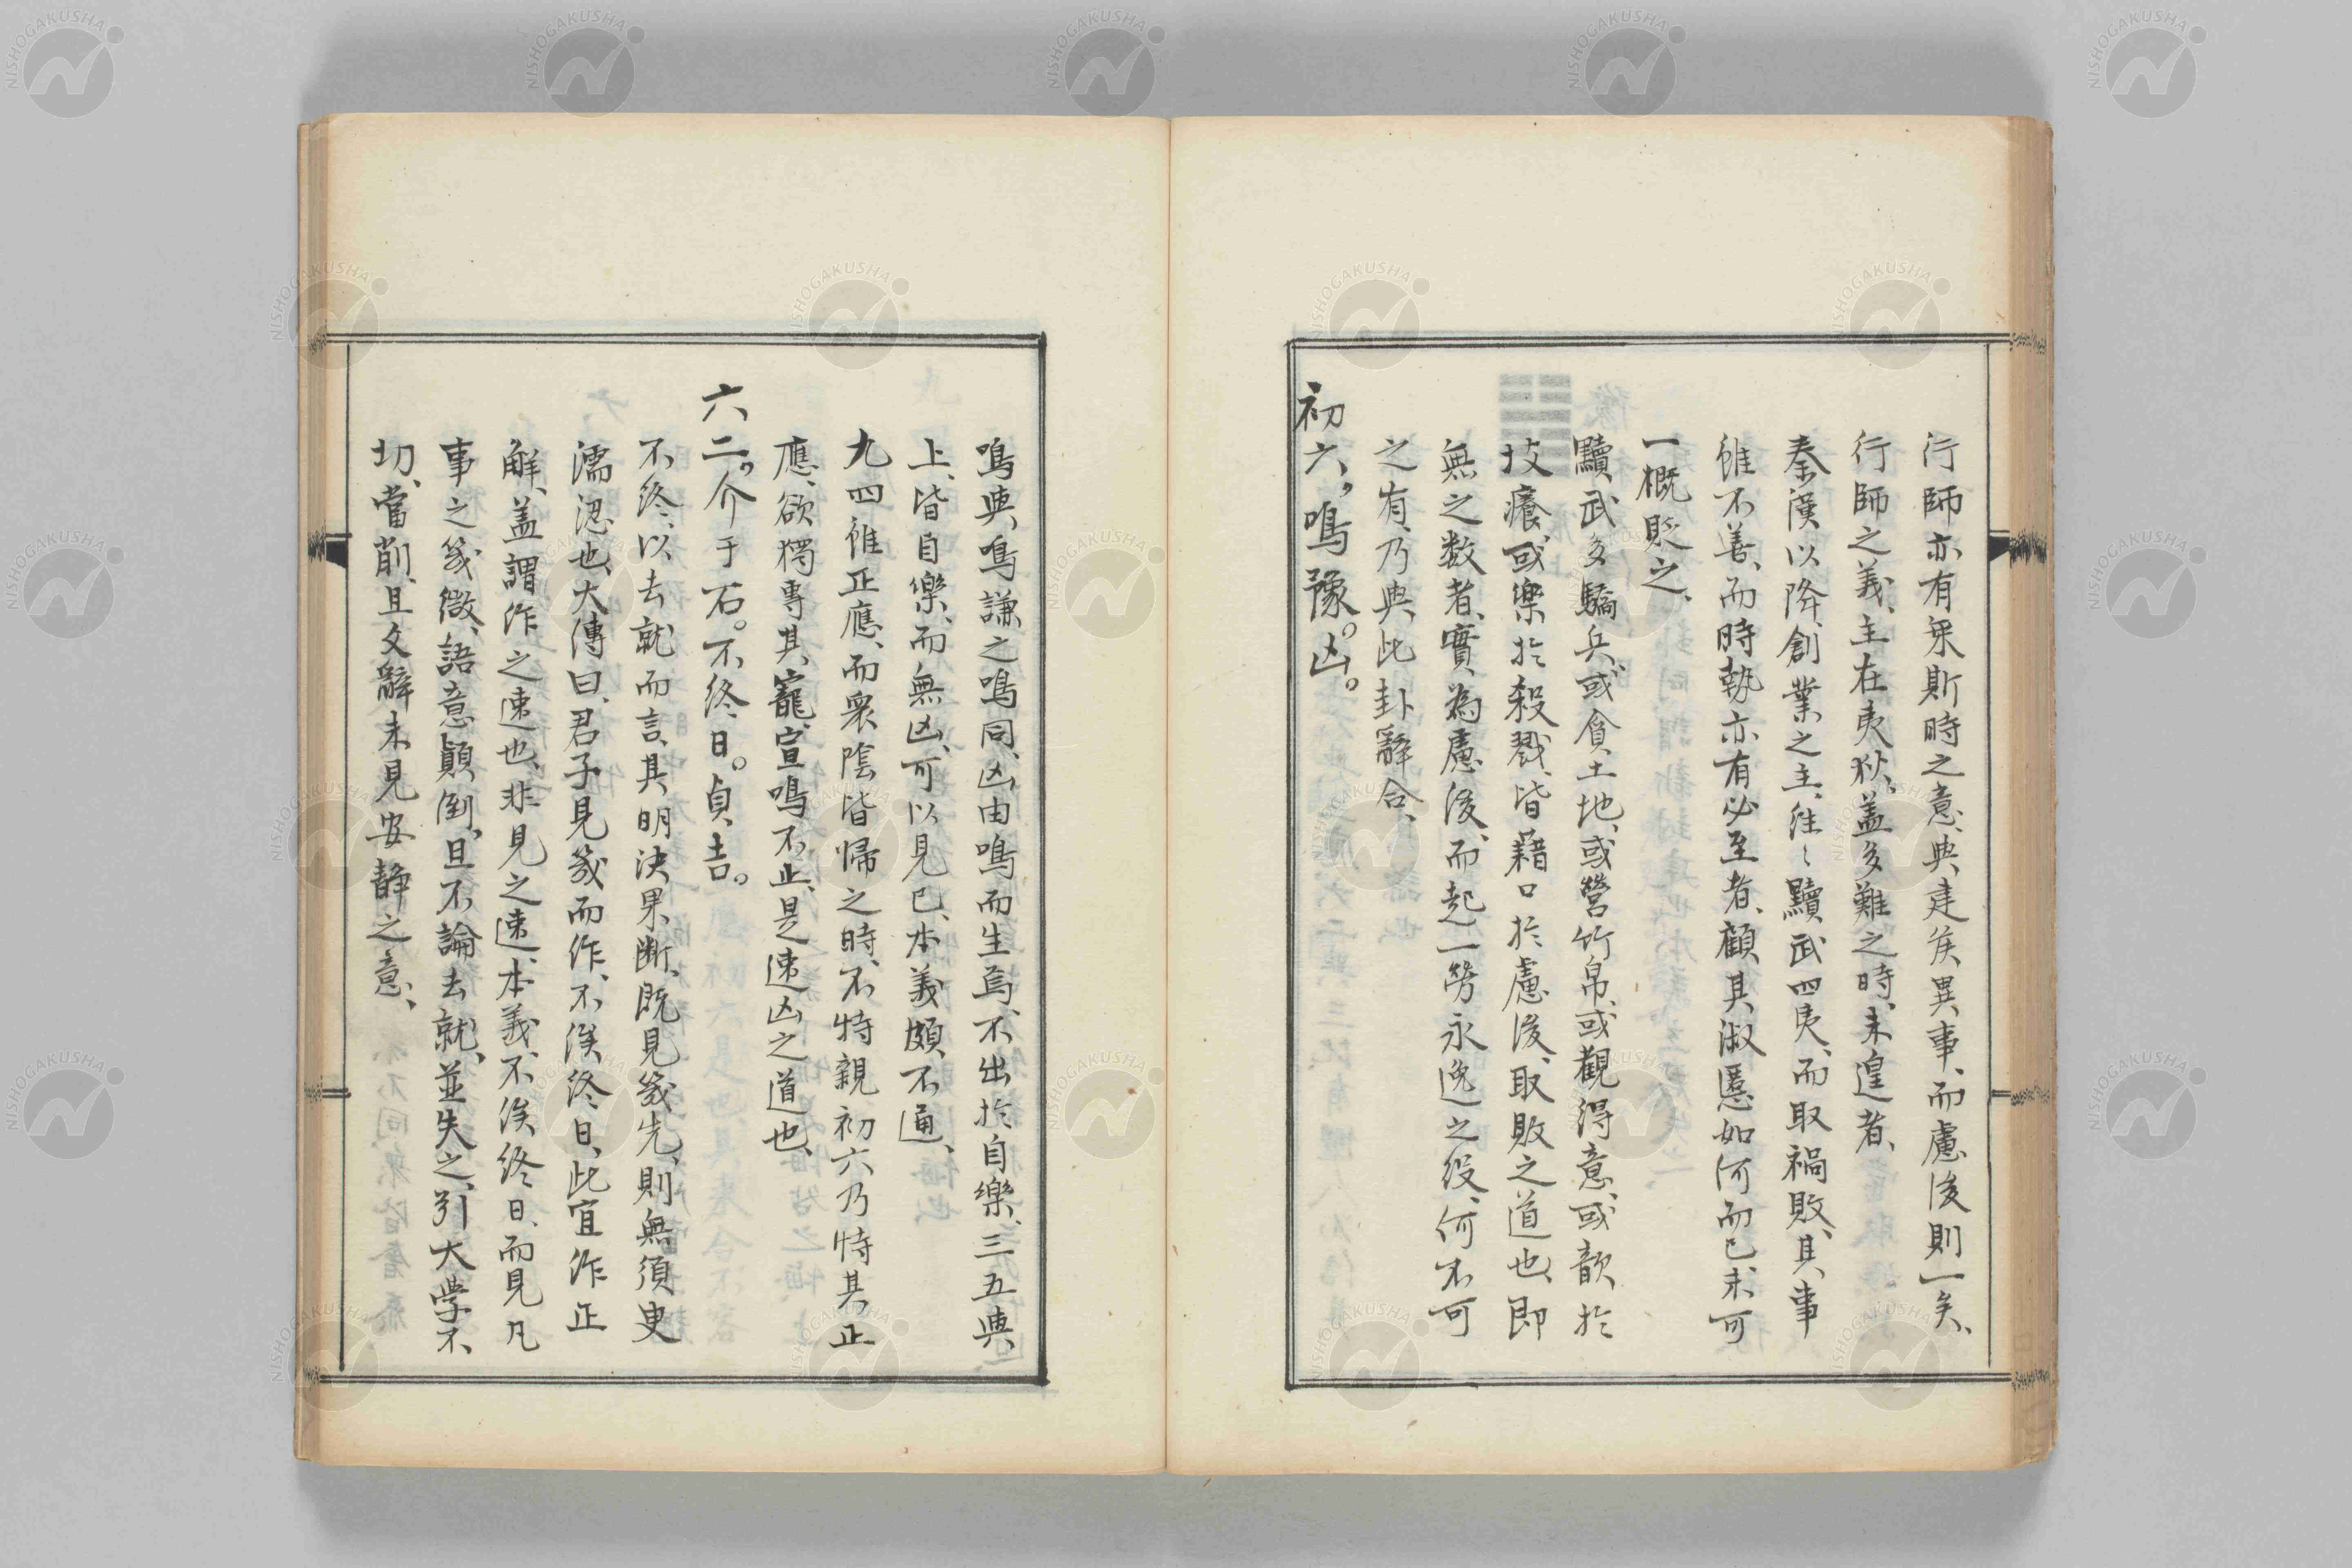 行師亦有采斯時之意、與建侯異事、而慮後則一矣、
行師之義、主在夷狄、蓋多難之時、未遑者、
秦漢以降、創業之主、往〻黷武四夷、而取禍敗、其事
雖不善、而時勢亦有必至者、顧其淑慝如何而已、未可
一概貶之、
黷武多驕兵、或貪土地、或營竹帛、或觀得意、或歆於
技癢、或樂於殺戮、皆藉口於慮後、取敗之道也、即
無之数者、實為慮後、而起一勞永逸之役、何不可
之有、乃與此卦辭合、
初六，鳴豫。凶。
鳴與鳴謙之鳴同、凶由鳴而生焉、不出於自樂、三五與
上、皆自樂、而無凶、可以見已、本義頗不通、
九四雖正應、而衆陰皆歸之時、不特親初六乃恃其正
應、欲獨專其寵、宣鳴不止、是速凶之道也、
六二，介于石。不終日。貞吉。
不終、以去就而言、其明決果断、既見幾先、則無須臾
濡滯也、大傳曰、君子見幾而作、不俟終日、此宜作正
解、蓋謂作之速也、非見之速、本義、不俟終日、而見凡
事之幾微、語意顛倒，且不論去就、並失之、引大學不
切、當削、且文辭未見安静之意、
NISHOGAKUSHA